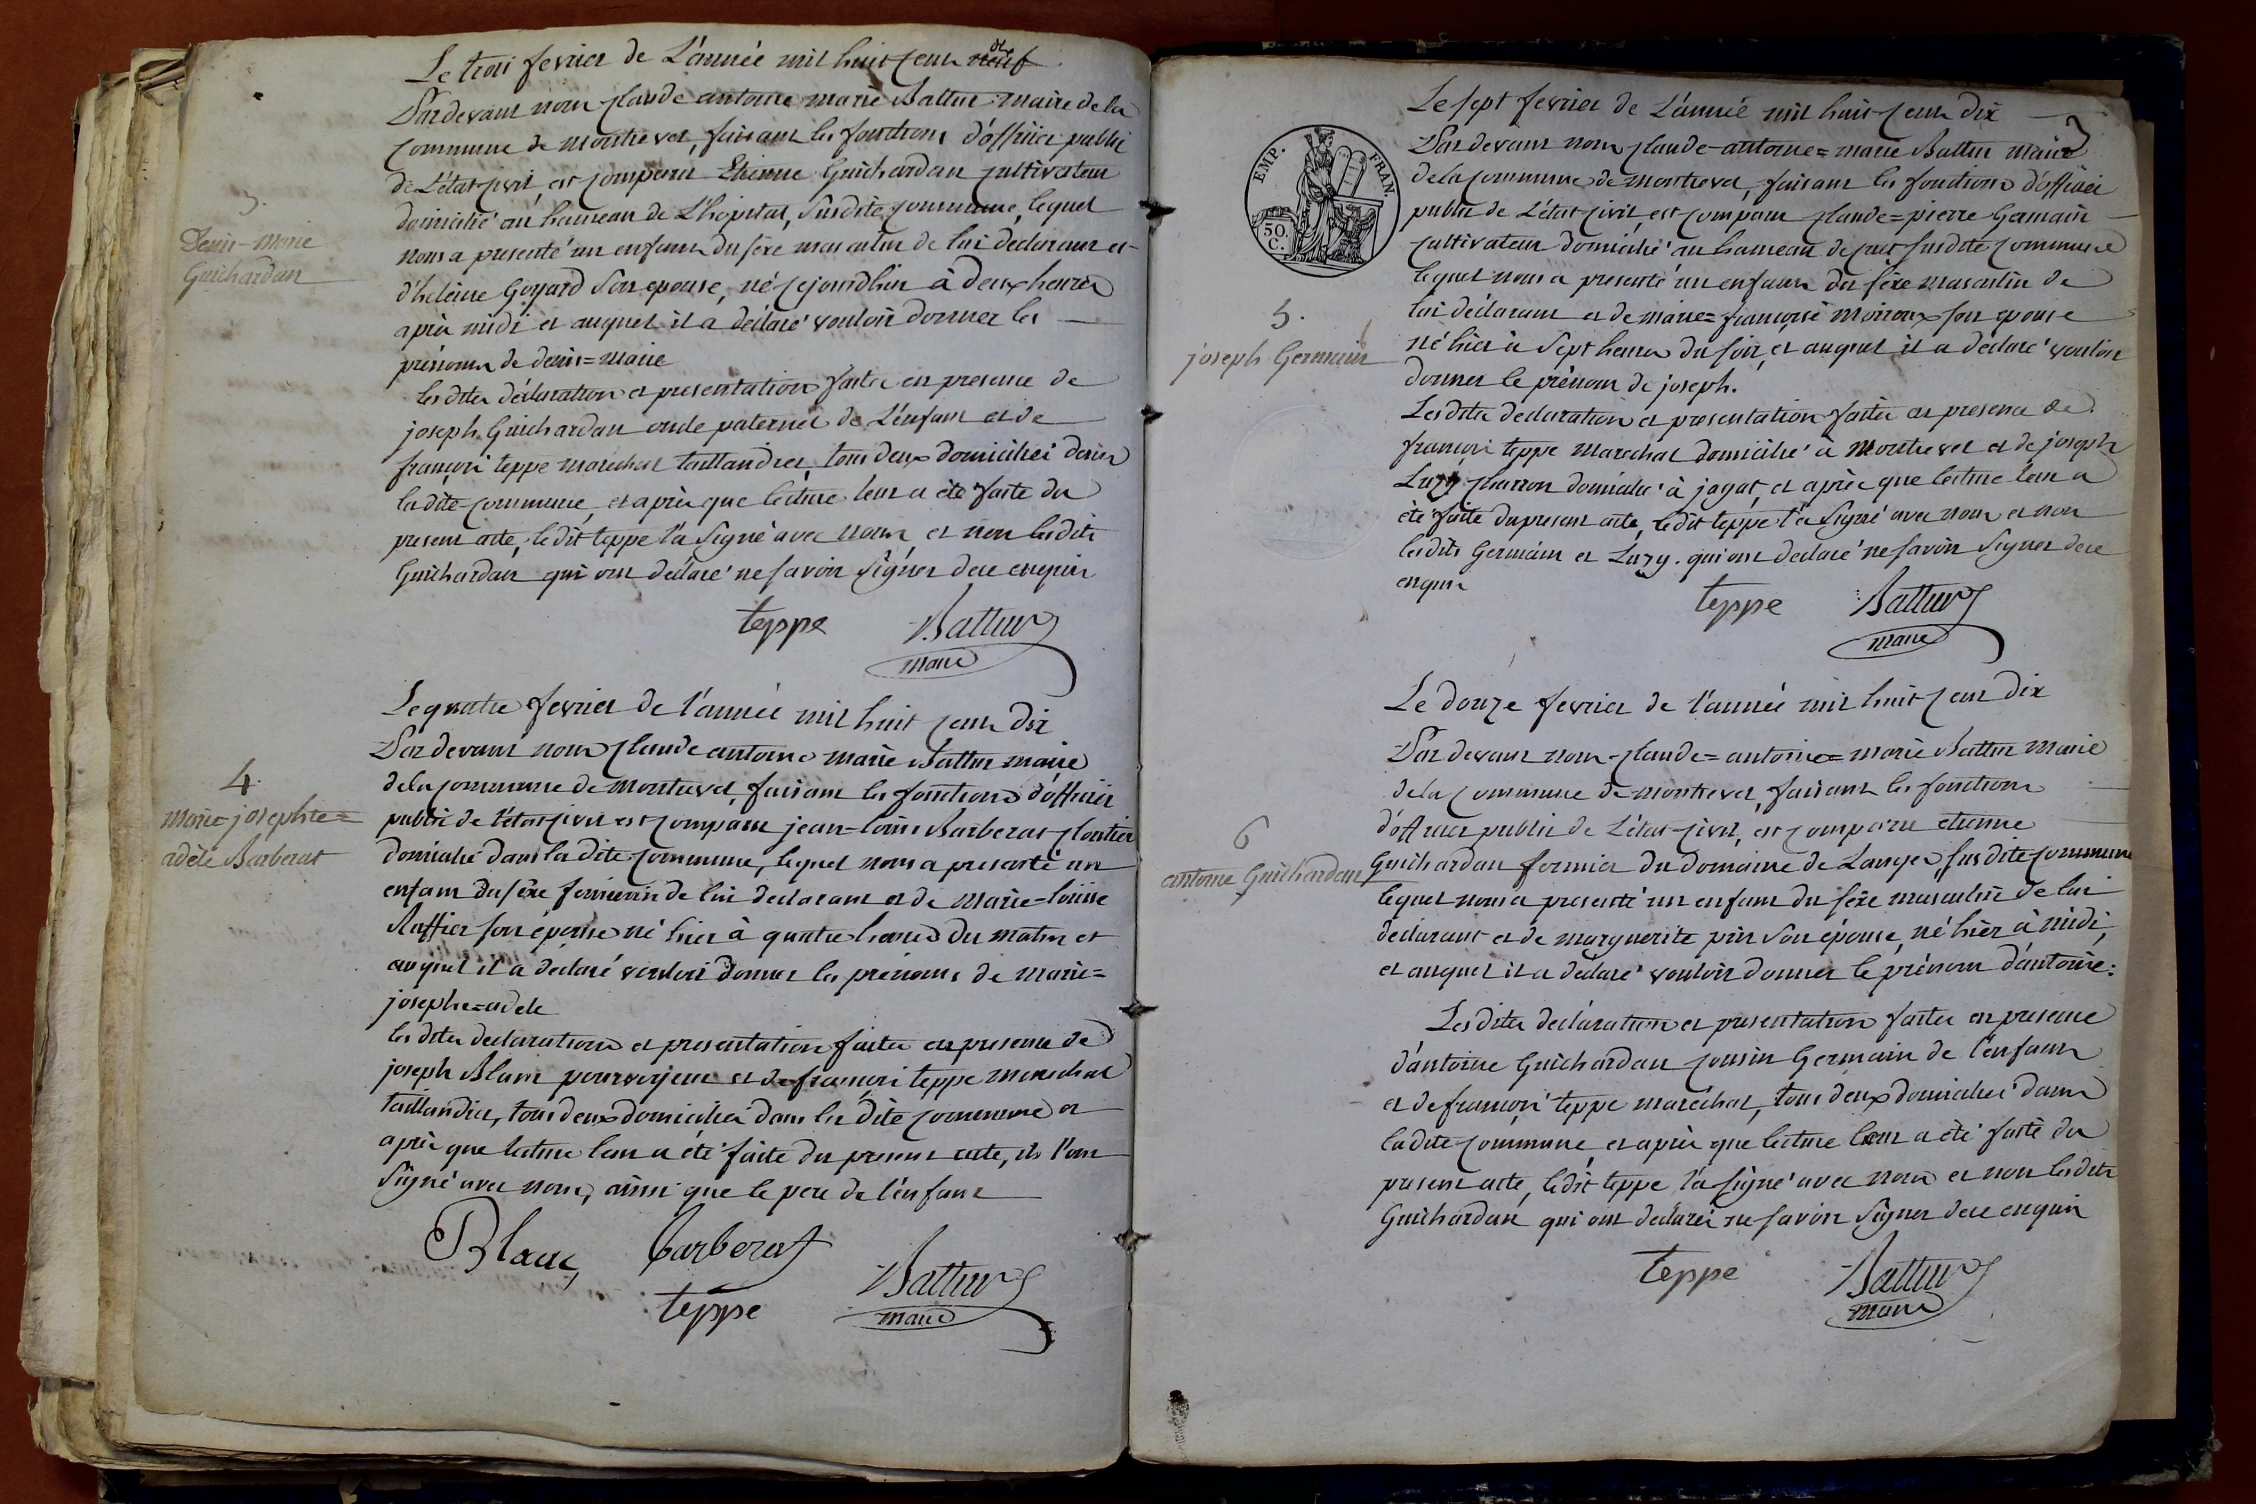 Le trois fevrier de L'année mil huit cent neuf dix
Pardevant nous claude antoine marie Battur maire de la
commune de montrevel, faisant les fonctions d'officier public
de L'état-civil, est comparu Etienne Guichardan cultivateur
domicilié au hameau de L'hopital, susdite commune, lequel
nous a presenté un enfant du sèxe masculin de lui declarant et
d'heleine Goyard son epouse, né cejourdhui à deux heures
après midi et auquel il a déclaré vouloir donner les
prénoms de denis=marie
lesdites déclaration et presentation faites en presence de
joseph Guichardan oncle paternel de L'enfant et de
françois teppe marechal taillandier, tous deux domiciliés dans
la dite commune, et après que lecture leur a été faite du
present acte, ledit teppe l'a signé avec nous, et non lesdits
Guichardan qui ont déclaré ne savoir signer de ce enquis
teppe Battur
maire
3.
Denis-Marie
Guichardan
Le quatre fevrier de l'année mil huit cent dix
Pardevant nous claude antoine marie Battur maire
dela commune de montrevel, faisant les fonctions d'officier
public de l'état-civil est comparu jean-louis Barberat cloutier
domicilié dans la dite commune, lequel nous a presenté un
enfant du sèxe feminin de lui declarant et de marie-louise
Ruffier son épouse né hier à quatre heures du matin et
auquel il a declaré vouloir donner les prénoms de marie=
josephe=adele
lesdites declaration et presentation faites en presence de
joseph Blanc pourvoyeur et de françois teppe marechal
taillandier, tous deux domiciliés dans la dite commune et
après que lecture leur a été faite du present acte, ils l'ont
signé avec nous, ainsi que le pere de l'enfant
Blanc barberat
teppe Battur
maire
4.
marie-josephte=
adèle Barberat
EMP. FRAN.
50.
C.
Le sept fevrier de L'année mil huit cent dix
Pardevant nous claude-antoine=marie Battur maire
dela commune de montrevel, faisant les fonctions d'officier
public de L'état-civil, est comparu claude=pierre Germain
cultivateur domicilié au hameau de cuet susdite commune
lequel nous a presenté un enfant du sèxe masculin de
lui déclarant et de marie=françoise moiroux son epouse
né hier à sept heures du soir, et auquel il a déclaré vouloir
donner le prénom de joseph.
Lesdites declaration et presentation faites en presence de
françois teppe marechal domicilié à montrevel et de joseph
Luzy charron domicilié à jayat, et après que lecture leur a
été faite du present acte, ledit teppe l'a signé avec nous et non
lesdits Germain et Luzy. qui ont declaré ne savoir signer de ce
enquis
teppe Battur
maire
5.
joseph Germain
Le douze fevrier de l'année mil huit cent dix
Pardevant nous claude=antoine=marie Battur marie
de la commune de montrevel, faisant les fonctions
d'officier public de L'état-civil, est comparu etienne
Guichardan fermier du domaine de Lange, susdite commune
lequel nous a presenté un enfant du sèxe masculin de lui
declarant et de marguerite pin son épouse, né hier à midi,
et auquel il a déclaré vouloir donner le prénom d'antoine:
Lesdites declaration et presentation faites en presence
d'antoine Guichardan cousin Germain de l'enfant
et de françois teppe marechal, tous deux domiciliés dans
ladite commune, et après que lecture leur a été faite du
present acte, ledit teppe l'a signé avec nous et non lesdits
Guichardan qui ont declaré ne savoir signer de ce enquis
teppe Battur
maire
6
antoine Guichardan